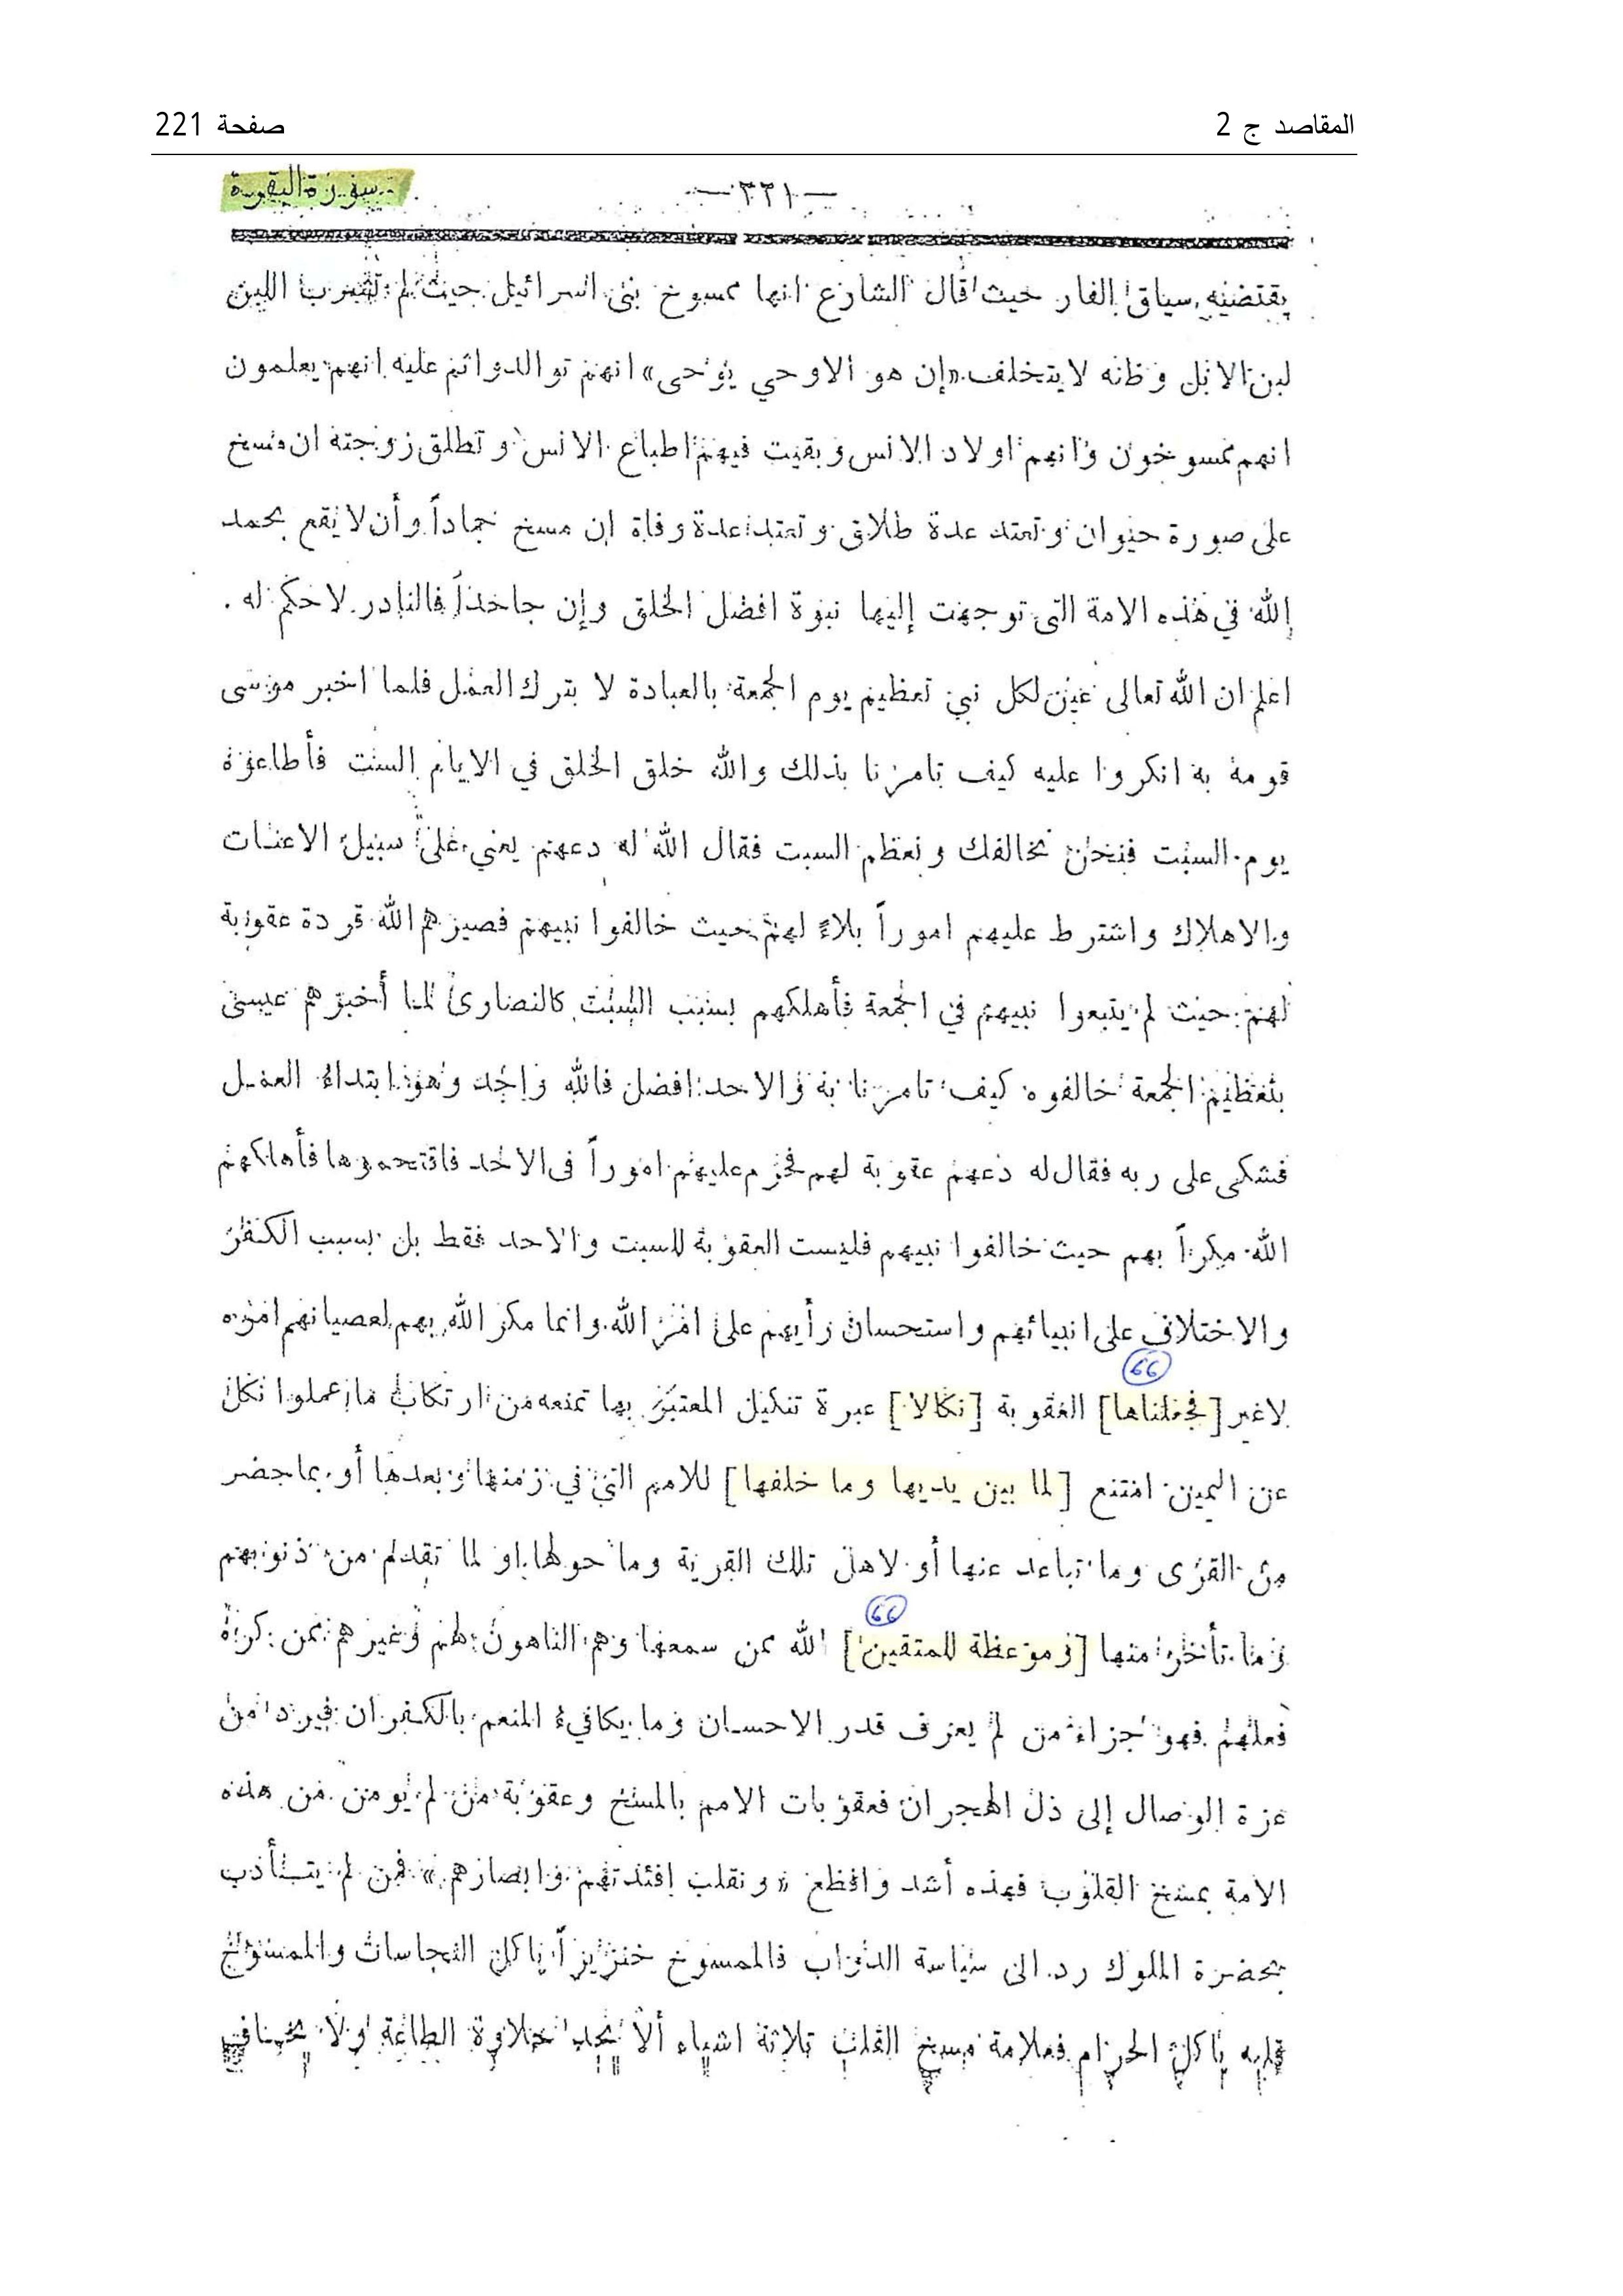 المقاصد ج 2
صفحة 221
— ٢٢١ —
سورة البقرة
يقتضيه سياق الفار حيث قال الشارع انها ممسوخ بنى اسرائيل حيث لم تشرب اللبن
لبن الابل وظنه لا يتخلف «إن هو الا وحي يوحى» انهم توالدوا ثم عليه انهم يعلمون
انهم ممسوخون وانهم اولاد الانس وبقيت فيهم اطباع الانس وتطلق زوجته ان مسخ
على صورة حيوان وتعتد عدة طلاق وتعتد عدة وفاة إن مسخ جماداً وأن لا يقع بحمد
الله في هذه الامة التى توجهت إليها نبوة افضل الخلق وإن جاحداً فالنادر لا حكم له .
اعلم ان الله تعالى عين لكل نبي تعظيم يوم الجمعة بالعبادة لا بترك العمل فلما اخبر موسى
قومه به انكروا عليه كيف تامرنا بذلك والله خلق الخلق في الايام الست فأطاعوه
يوم السبت فنحن نخالفك ونعظم السبت فقال الله له دعهم يعني على سبيل الاعنات
والاهلاك واشترط عليهم اموراً بلاءً لهم حيث خالفوا نبيهم فصيرهم الله قردة عقوبة
لهم حيث لم يتبعوا نبيهم في الجمعة فأهلكهم بسبب السبت كالنصارى لما أخبرهم عيسى
بتعظيم الجمعة خالفوه كيف تامرنا به والاحد افضل فالله واحد وهو ابتداء العمل
فشكى على ربه فقال له دعهم عقوبة لهم فحرم عليهم اموراً فى الاحد فاقتحموها فأهلكهم
الله مكراً بهم حيث خالفوا نبيهم فليست العقوبة للسبت والاحد فقط بل بسبب الكفر
والاختلاف على انبيائهم واستحسان رأيهم على امر الله وانما مكر الله بهم لعصيانهم امره
66
لاغير [فجعلناها] العقوبة [نكالا] عبرة تنكيل المعتبر بها تمنعه من ارتكاب ما عملوا نكل
عن اليمين امتنع [لما بين يديها وما خلفها] للامم التى في زمنها وبعدها أو بما حضر
من القرى وما تباعد عنها أو لاهل تلك القرية وما حولها او لما تقدم من ذنوبهم
66
وما تأخر منها [وموعظة للمتقين] الله ممن سمعها وهم الناهون لهم وغيرهم ممن كره
فعلهم فهو جزاء من لم يعرف قدر الاحسان وما يكافيء المنعم بالكفران فيرد من
عزة الوصال إلى ذل الهجران فعقوبات الامم بالمسخ وعقوبة من لم يومن من هذه
الامة بمسخ القلوب فهذه أشد وافظع «ونقلب افئدتهم وابصارهم» فمن لم يتأدب
بحضرة الملوك رد الى سياسة الدواب فالممسوخ خنزيراً ياكل النجاسات والممسوخ
قلبه ياكل الحرام فعلامة مسخ القلب ثلاثة اشياء ألا يجد حلاوة الطاعة ولا يخاف